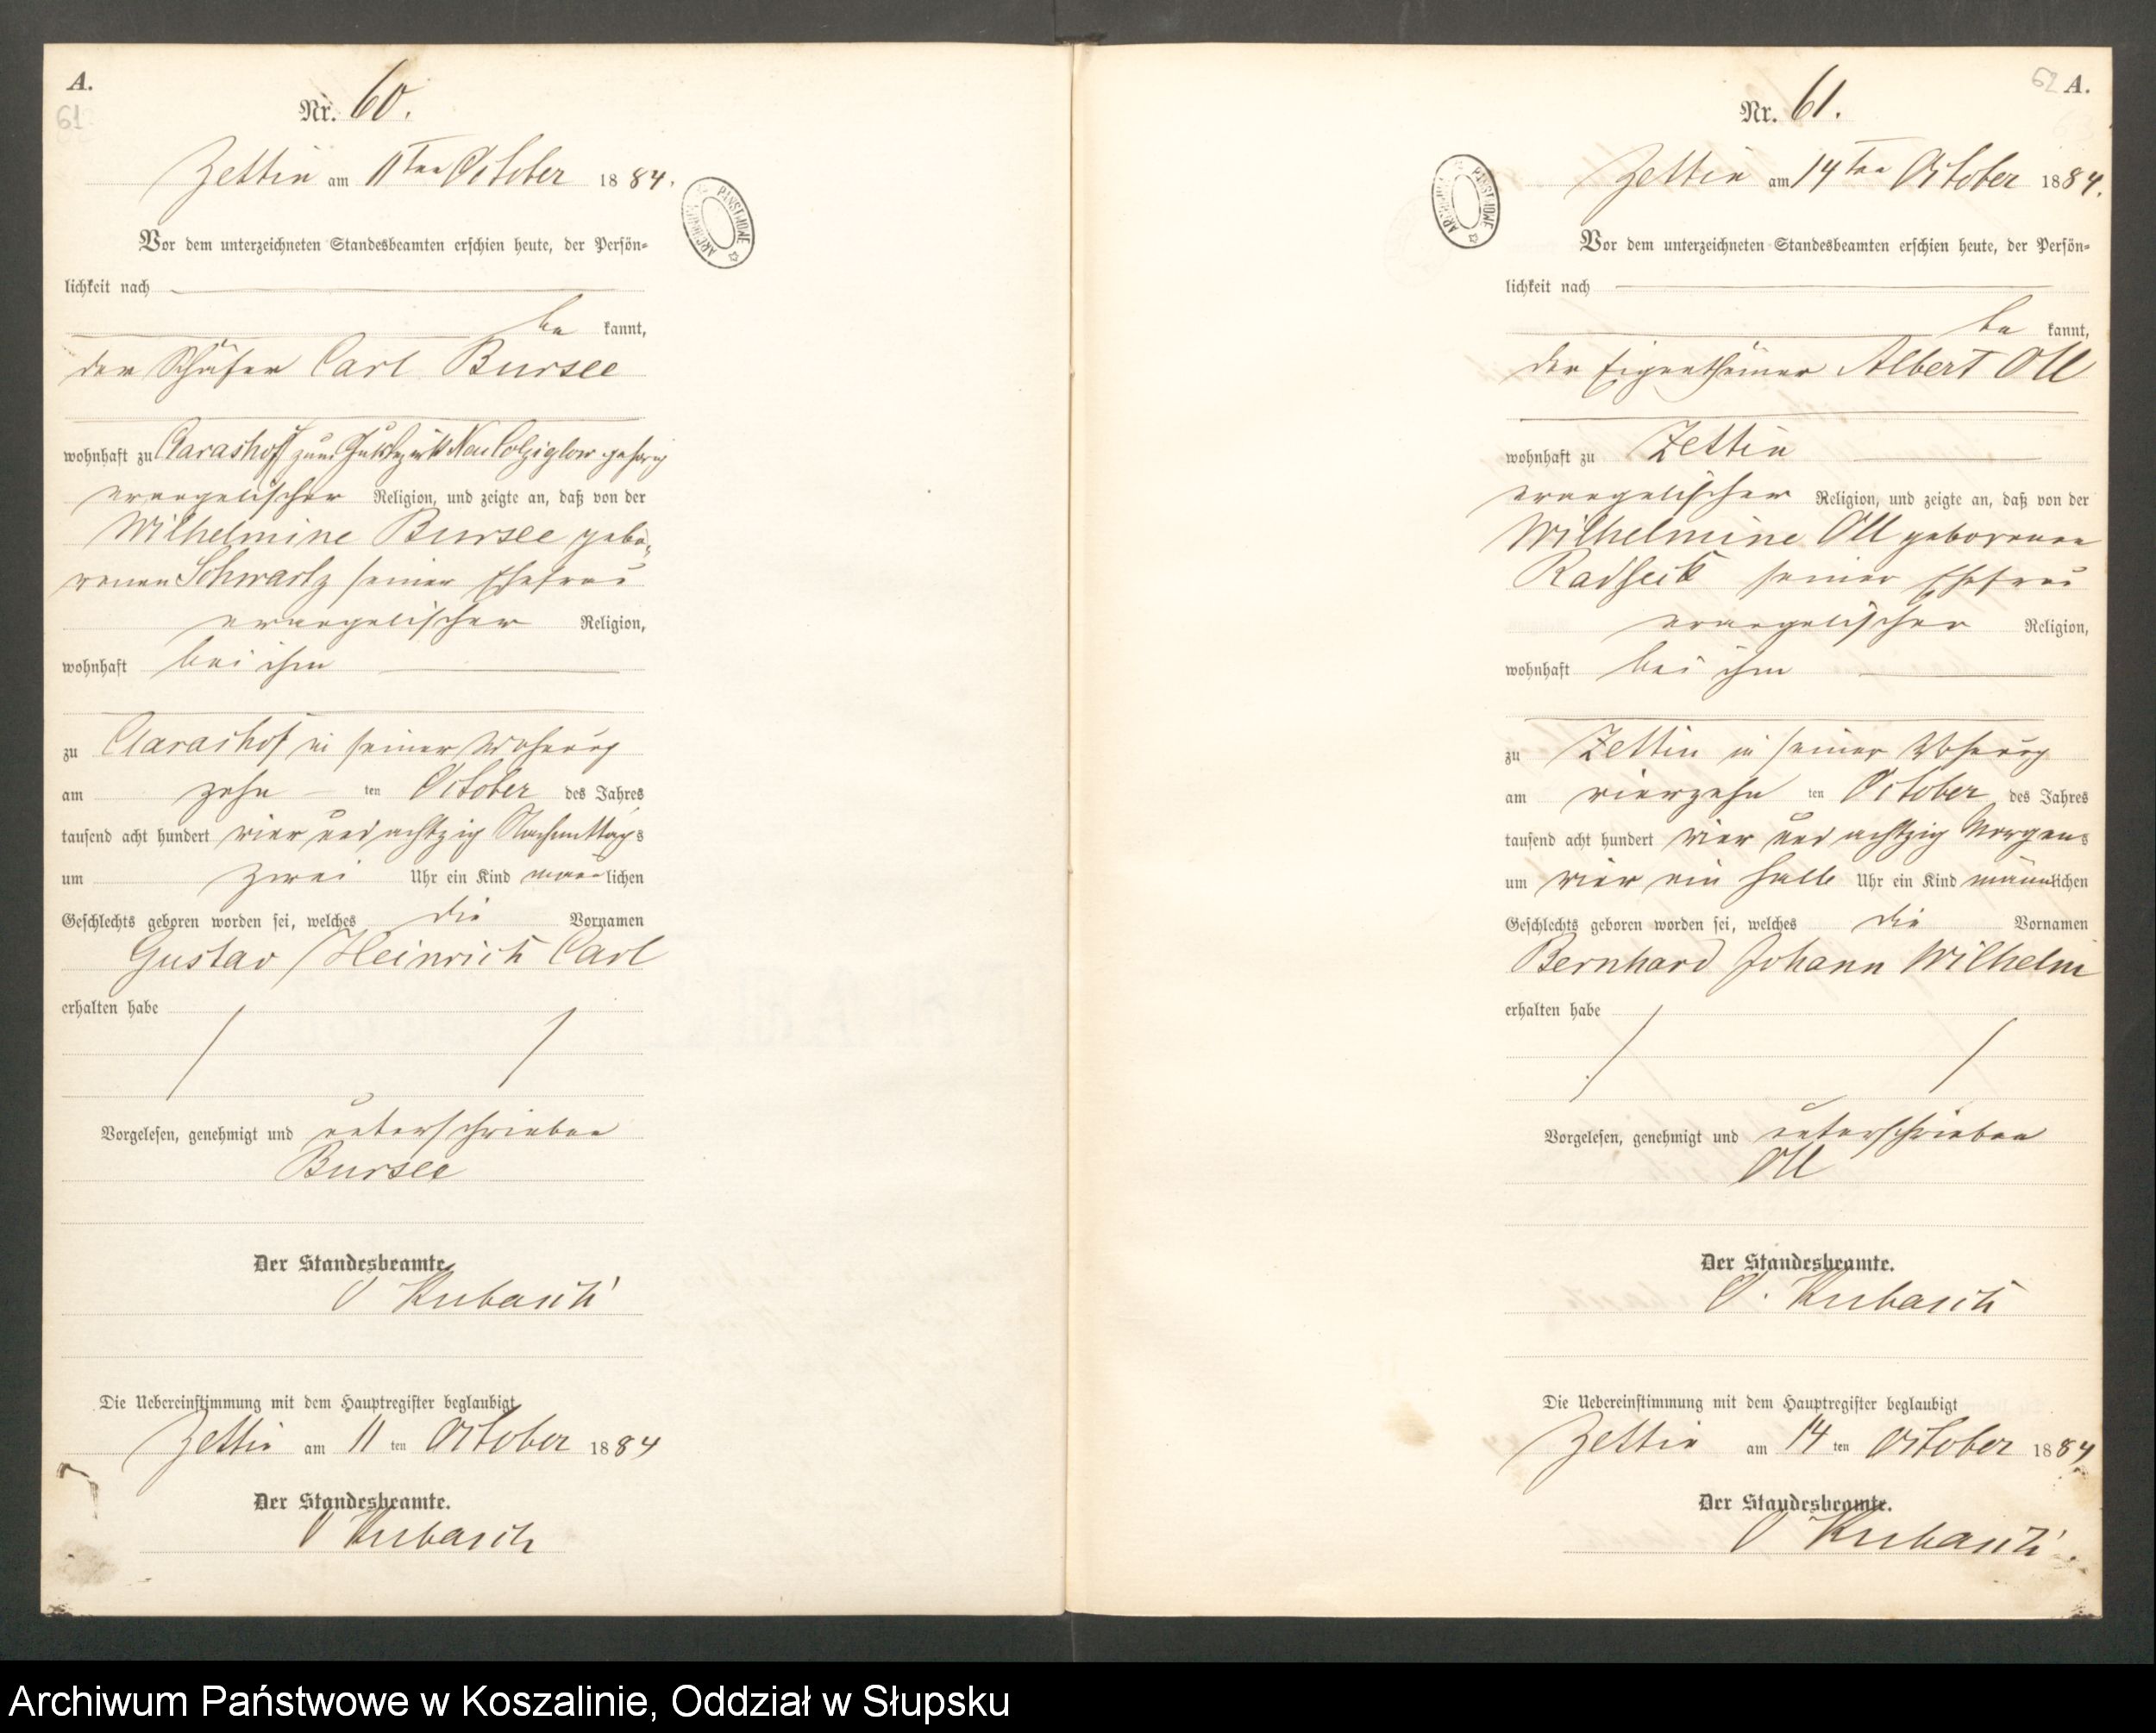 A.
61
Nr. 60.
Zettin am 11ten October 1884.
Vor dem unterzeichneten Standesbeamten erschien heute, der Persön-
lichkeit nach
be kannt,
der Schäfer Carl Bursee
wohnhaft zu Clarashoff zum Gutsbezirk Neu Colziglow gehörig
evangelischer Religion, und zeigte an, daß von der
Wilhelmine Bursee gebo-
renen Schwartz seiner Ehefrau
evangelischer Religion,
wohnhaft bei ihm
zu Clarashof in seiner Wohnung
am zehn ten October des Jahres
tausend acht hundert vier und achtzig Nachmittags
um zwei Uhr ein Kind männlichen
Geschlechts geboren worden sei, welches die Vornamen
Gustav Heinrich Carl
erhalten habe
Vorgelesen, genehmigt und unterschrieben
Bursee
Der Standesbeamte.
O Kubasch
Die Uebereinstimmung mit dem Hauptregister beglaubigt
Zettin am 11 ten October 1884
Der Standesbeamte.
O Kubasch
ARCHIWUM PAŃSTWOWE
62 A.
Nr. 61.
Zettin am 14ten October 1884.
Vor dem unterzeichneten Standesbeamten erschien heute, der Persön-
lichkeit nach
be kannt,
der Eigenthümer Albert Oll
wohnhaft zu Zettin
evangelischer Religion, und zeigte an, daß von der
Wilhelmine Oll geborenen
Radseck seiner Ehefrau
evangelischer Religion,
wohnhaft bei ihm
zu Zettin in seiner Wohnung
am vierzehn ten October des Jahres
tausend acht hundert vier und achtzig Morgens
um vier ein halb Uhr ein Kind männlichen
Geschlechts geboren worden sei, welches die Vornamen
Bernhard Johann Wilhelm
erhalten habe
Vorgelesen, genehmigt und unterschrieben
Oll
Der Standesbeamte.
O. Kubasch
Die Uebereinstimmung mit dem Hauptregister beglaubigt
Zettin am 14 ten October 1884
Der Standesbeamte.
O Kubasch.
ARCHIWUM PAŃSTWOWE
Archiwum Państwowe w Koszalinie, Oddział w Słupsku